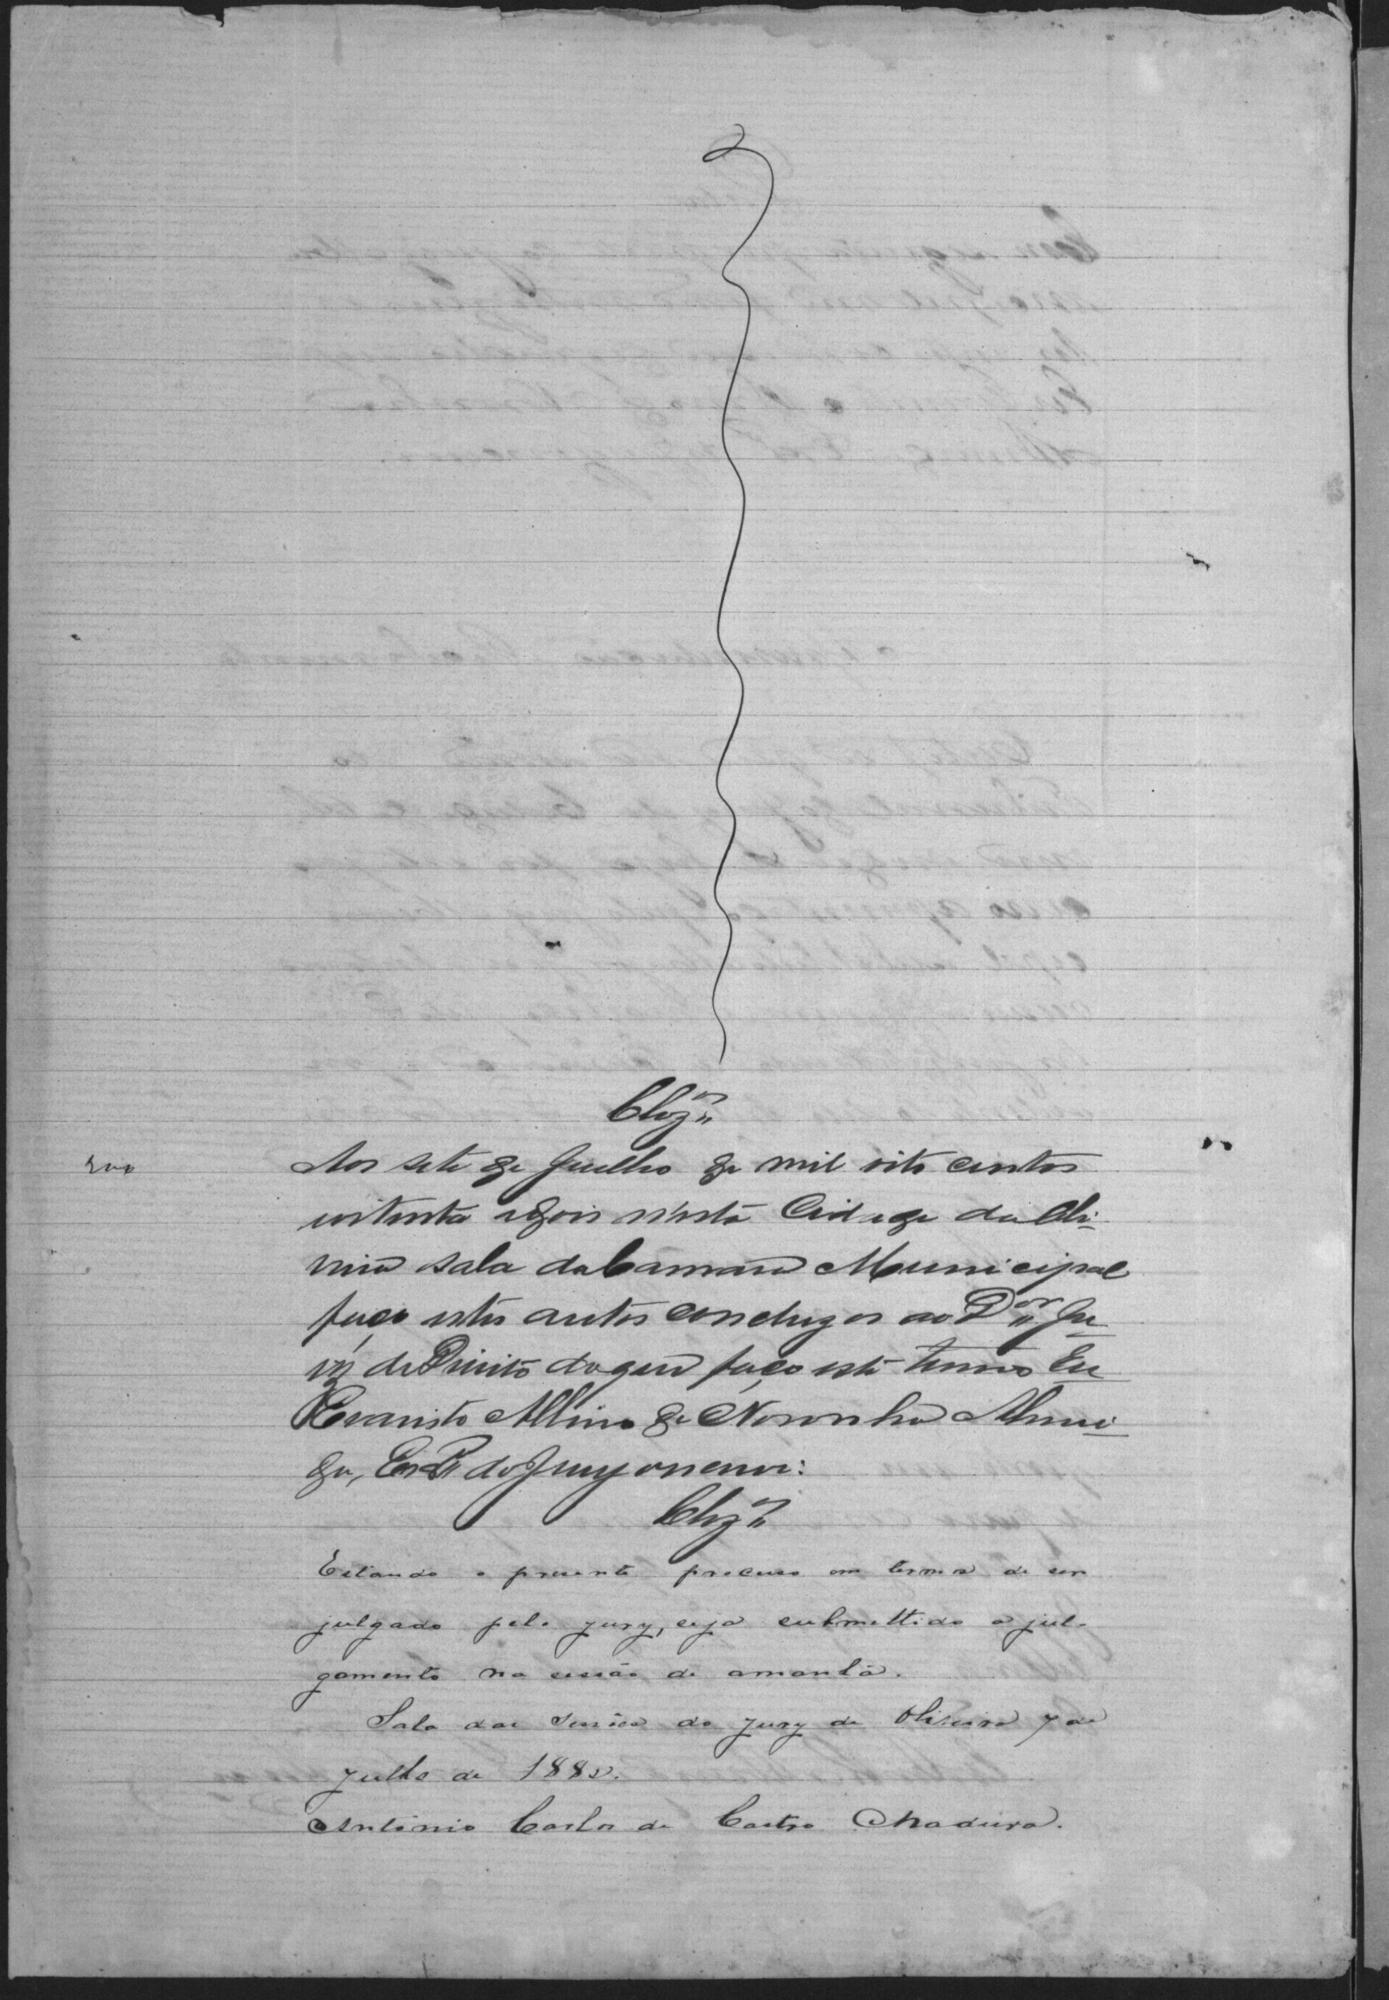 Clzᵃᵒ
200
Aos sete de Julho de mil oito centos
oitenta e dois n'esta Cidade da Oli-
veira sala da Camara Municipal
faço estes autos concluzos ao Dᵒʳ Ju-
iz de Direito do que faço este termo Eu
Evaristo Albino de Noronha Almei-
da, do Jury o escrevi:
Clzᵒˢ
Estando o presente processo em termos de ser
julgado pelo jury, seja submettido a jul-
gamento na sessão de amanhã.
Sala das Sessões do jury de Oliveira 7 de
Julho de 1882.
Antonio Carlos de Castro Madura.